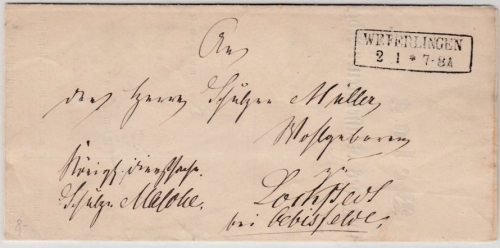 An
WEFERLINGEN
2 1 * 7-8A
den Herrn Schulzen Müller
Wohlgeboren
zu
Königl. Dienstsache.
Lockstedt
Schulze
bei Oebisfelde.